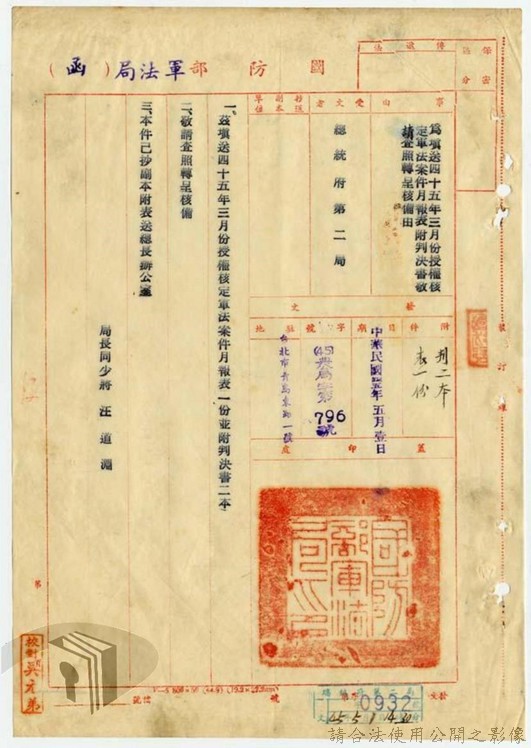 國防部軍法局（函）
保存
年
密
區分
事由
為填送四十五年三月份授權核
定軍法案件月報表附判決書敬
請查照轉呈核備由
受文者
總統府第二局
副本
單位
發文
附件
判二本
表一份
日期
中華民國45年五月壹日
字號
796
號
駐地
台北市青島東路一號
蓋印處
國防部軍法局印
一、茲填送四十五年三月份授權核定軍法案件月報表一份並附判決書二本
二、敬請查照轉呈核備
三、本件已抄副本附表送總長辦公室
局長同少將汪道淵
裝訂線
第
號
校對
吳元弟
收文
0932
45 5 1
請合法使用公開之影像